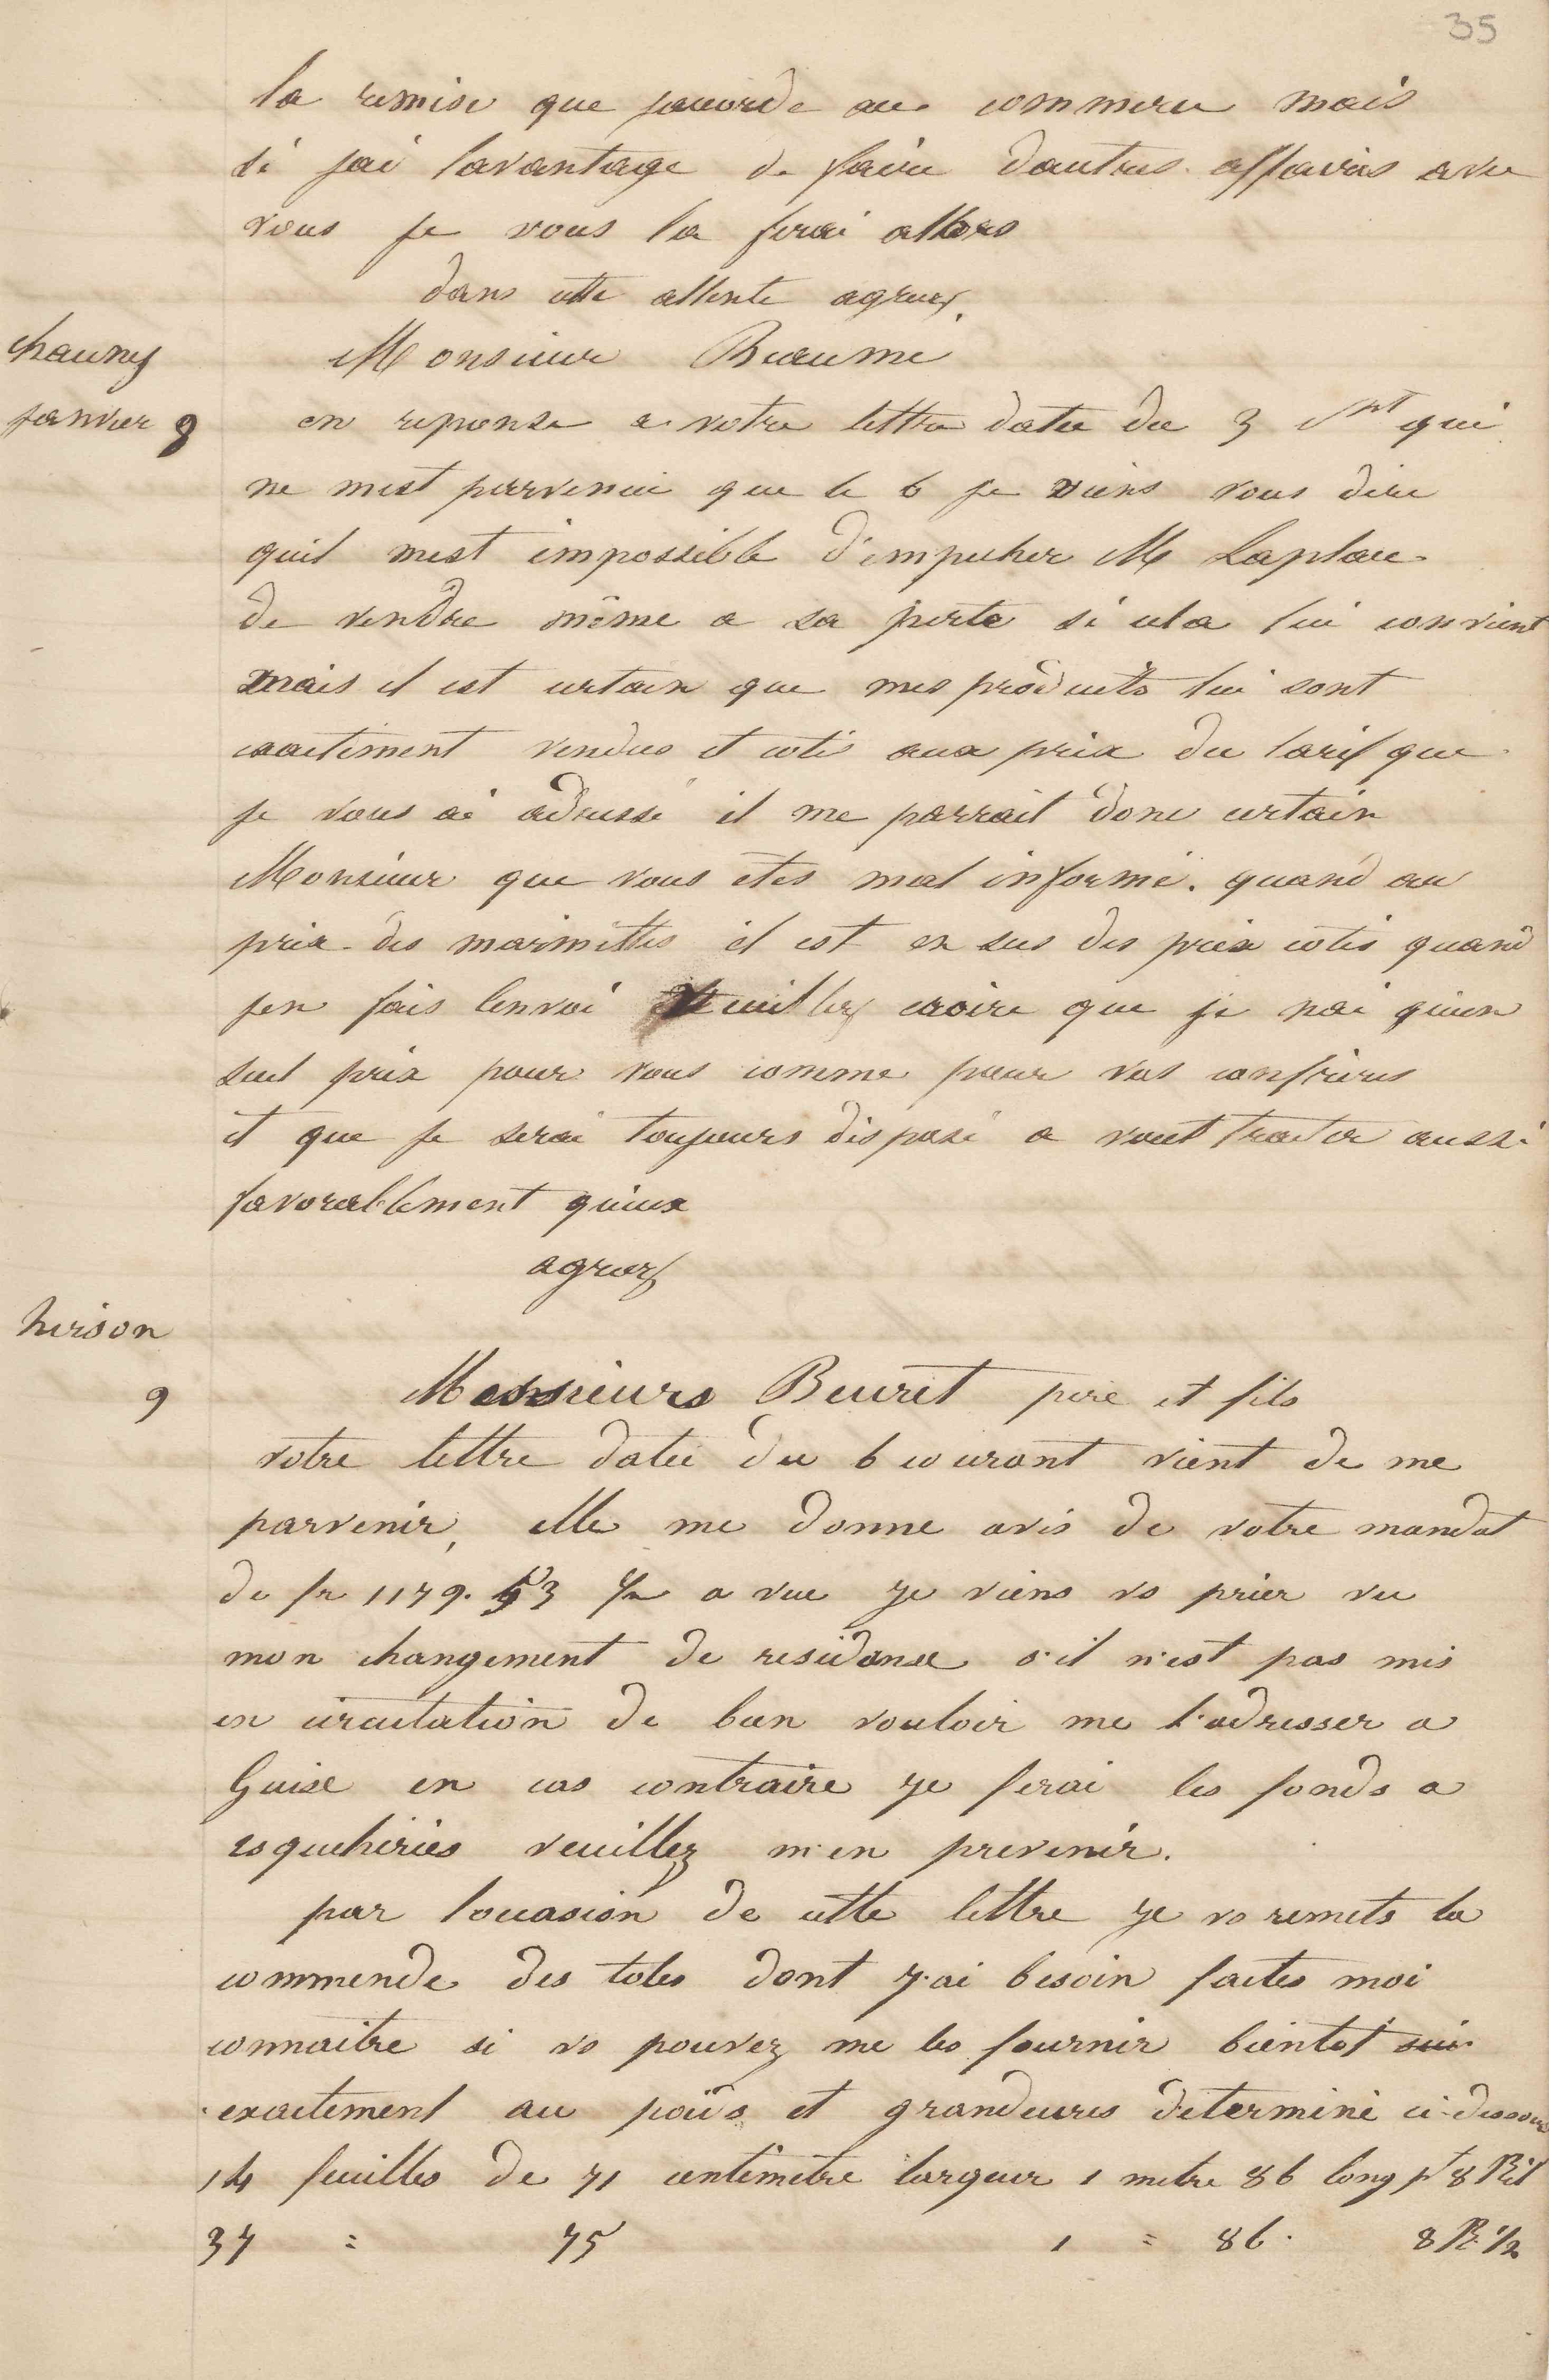 35
la remise que jaccorde au commerce mais
si jai lavantage de faire dautres affaires avec
vous je vous la ferai allors
dans cette attente agreez.
chauny
Monsieur Beaumé
janvier 9
en reponse a votre lettre datee du 3 ct qui
ne mest parvenue que le 6 je viens vous dire
quil mest impossible d'empecher Mr Laplace
de vendre même a sa perte si cela lui convient
mais il est certain que mes produits lui sont
exactement vendus et cotés aux prix du tarif que
je vous ai adressé il me parrait donc certain
Monsieur que vous etes mal informé. quand au
prix des marmittes il est en sus des prix cotés quand
jen fais lenvoi veuillez croire que je nai quun
seul prix pour vous comme pour vos confrères
et que je serai toujours disposé a vous traiter aussi
favorablement queux
agreez
hirson
9
Messieurs Beuret pere et fils
votre lettre datée du 6 courant vient de me
parvenir, elle me donne avis de votre mandat
de fr 1179.53 a vue je viens vs prier vu
mon changement de residance s'il n'est pas mis
en circulation de bien vouloir me l'adresser a
Guise en cas contraire je ferai les fonds a
esquehéries veuillez m'en prevenir.
par loccasion de cette lettre je vs remets la
commende des toles dont j'ai besoin faites moi
connaitre si vs pouvez me les fournir bientot
exactement au poids et grandeures determiné ci-dessous
14 feuilles de 71 centimètre largeur 1 metre 86 long pt 8 Kil
37 = 75 1 = 86. 8 K. 1/2